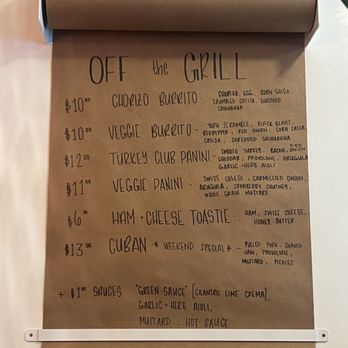 OFF the GRILL
$10.00 CHORIZO BURRITO - CHORIZO, EGG, CORN SALSA,
CRUMBLED COTIJA, SHREDDED
CHIHUAHUA
$10.00 VEGGIE BURRITO - TOFU SCRAMBLE, BLACK BEANS,
RED PEPPER, RED ONION, CORN SALSA,
COTIJA, SHREDDED CHIHUAHUA
$12.00 TURKEY CLUB PANINI - SMOKED TURKEY, BACON, RED ONION
CHEDDAR, PROVOLONE, ARUGULA
GARLIC + HERB AIOLI
$11.00 VEGGIE PANINI - SWISS CHEESE, CARMELIZED ONION,
ARUGULA, CRANBERRY CHUTNEY,
WHOLE GRAIN MUSTARD
$6.00 HAM + CHEESE TOASTIE - HAM, SWISS CHEESE,
HONEY BUTTER
$13.00 CUBAN * WEEKEND SPECIAL * - PULLED PORK, SHAVED
HAM, PROVOLONE,
MUSTARD, PICKLES
+ $1.00 SAUCES "GREEN SAUCE" [CILANTRO LIME CREMA],
GARLIC + HERB AIOLI,
MUSTARD, HOT SAUCE